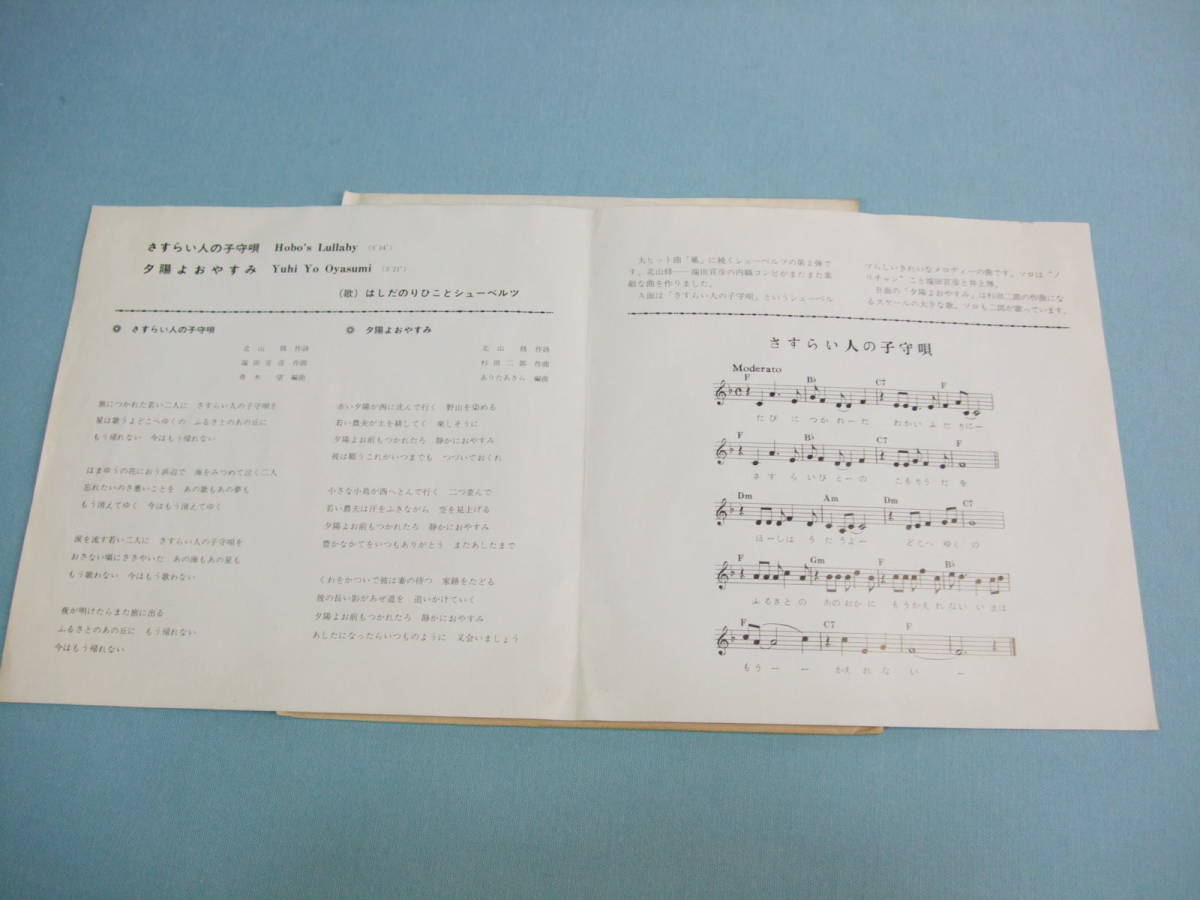 さすらい人の子守唄 Hobo's Lullaby (3'14")
夕陽よおやすみ Yuhi Yo Oyasumi (3'21")
(歌) はしだのりひことシューベルツ
さすらい人の子守唄
北山修 作詩
端田宣彦 作曲
青木望 編曲
旅につかれた若い二人に さすらい人の子守唄を
星は歌うよどこへゆくの ふるさとのあの丘に
もう帰れない 今はもう帰れない
はまゆうの花におう浜辺で 海をみつめて泣く二人
忘れたいのさ悪いことを あの歌もあの夢も
もう消えてゆく 今はもう消えてゆく
涙を流す若い二人に さすらい人の子守唄を
おさない頃にささやいた あの海もあの星も
もう歌わない 今はもう歌わない
夜が明けたらまた旅に出る
ふるさとのあの丘に もう帰れない
今はもう帰れない
夕陽よおやすみ
北山修 作詩
杉田二郎 作曲
ありたあきら 編曲
赤い夕陽が西に沈んで行く 野山を染める
若い農夫が土を耕してく 楽しそうに
夕陽よお前もつかれたろ 静かにおやすみ
彼は願うこれがいつまでも つづいておくれ
小さな小鳥が西へとんで行く 二つ並んで
若い農夫は汗をふきながら 空を見上げる
夕陽よお前もつかれたろ 静かにおやすみ
豊かなかてをいつもありがとう またあしたまで
くわをかついで彼は妻の待つ 家路をたどる
彼の長い影があぜ道を 追いかけていく
夕陽よお前もつかれたろ 静かにおやすみ
あしたになったらいつものように 又会いましょう
大ヒット曲「風」に続くシューベルツの第2弾で
す。北山修──端田宣彦の内職コンビがまたまた素
敵な曲を作りました。
A面は「さすらい人の子守唄」というシューベル
ツらしいきれいなメロディーの曲です。ソロは"ノ
リチャン"こと端田宣彦と井上博。
B面の「夕陽よおやすみ」は杉田二郎の作曲にな
るスケールの大きな歌。ソロも二郎が歌っています。
さすらい人の子守唄
Moderato
F B♭ C7 F
たび につかれーた わかいふたりにー
F B♭ C7 F
さすらいびとーの こもりうたを
Dm Am Dm C7
ほーしは うたうよー どこへゆくの
F Gm F B♭
ふるさとの あのおかに もうかえれない いまは
F C7 F
もうーー かえれないー